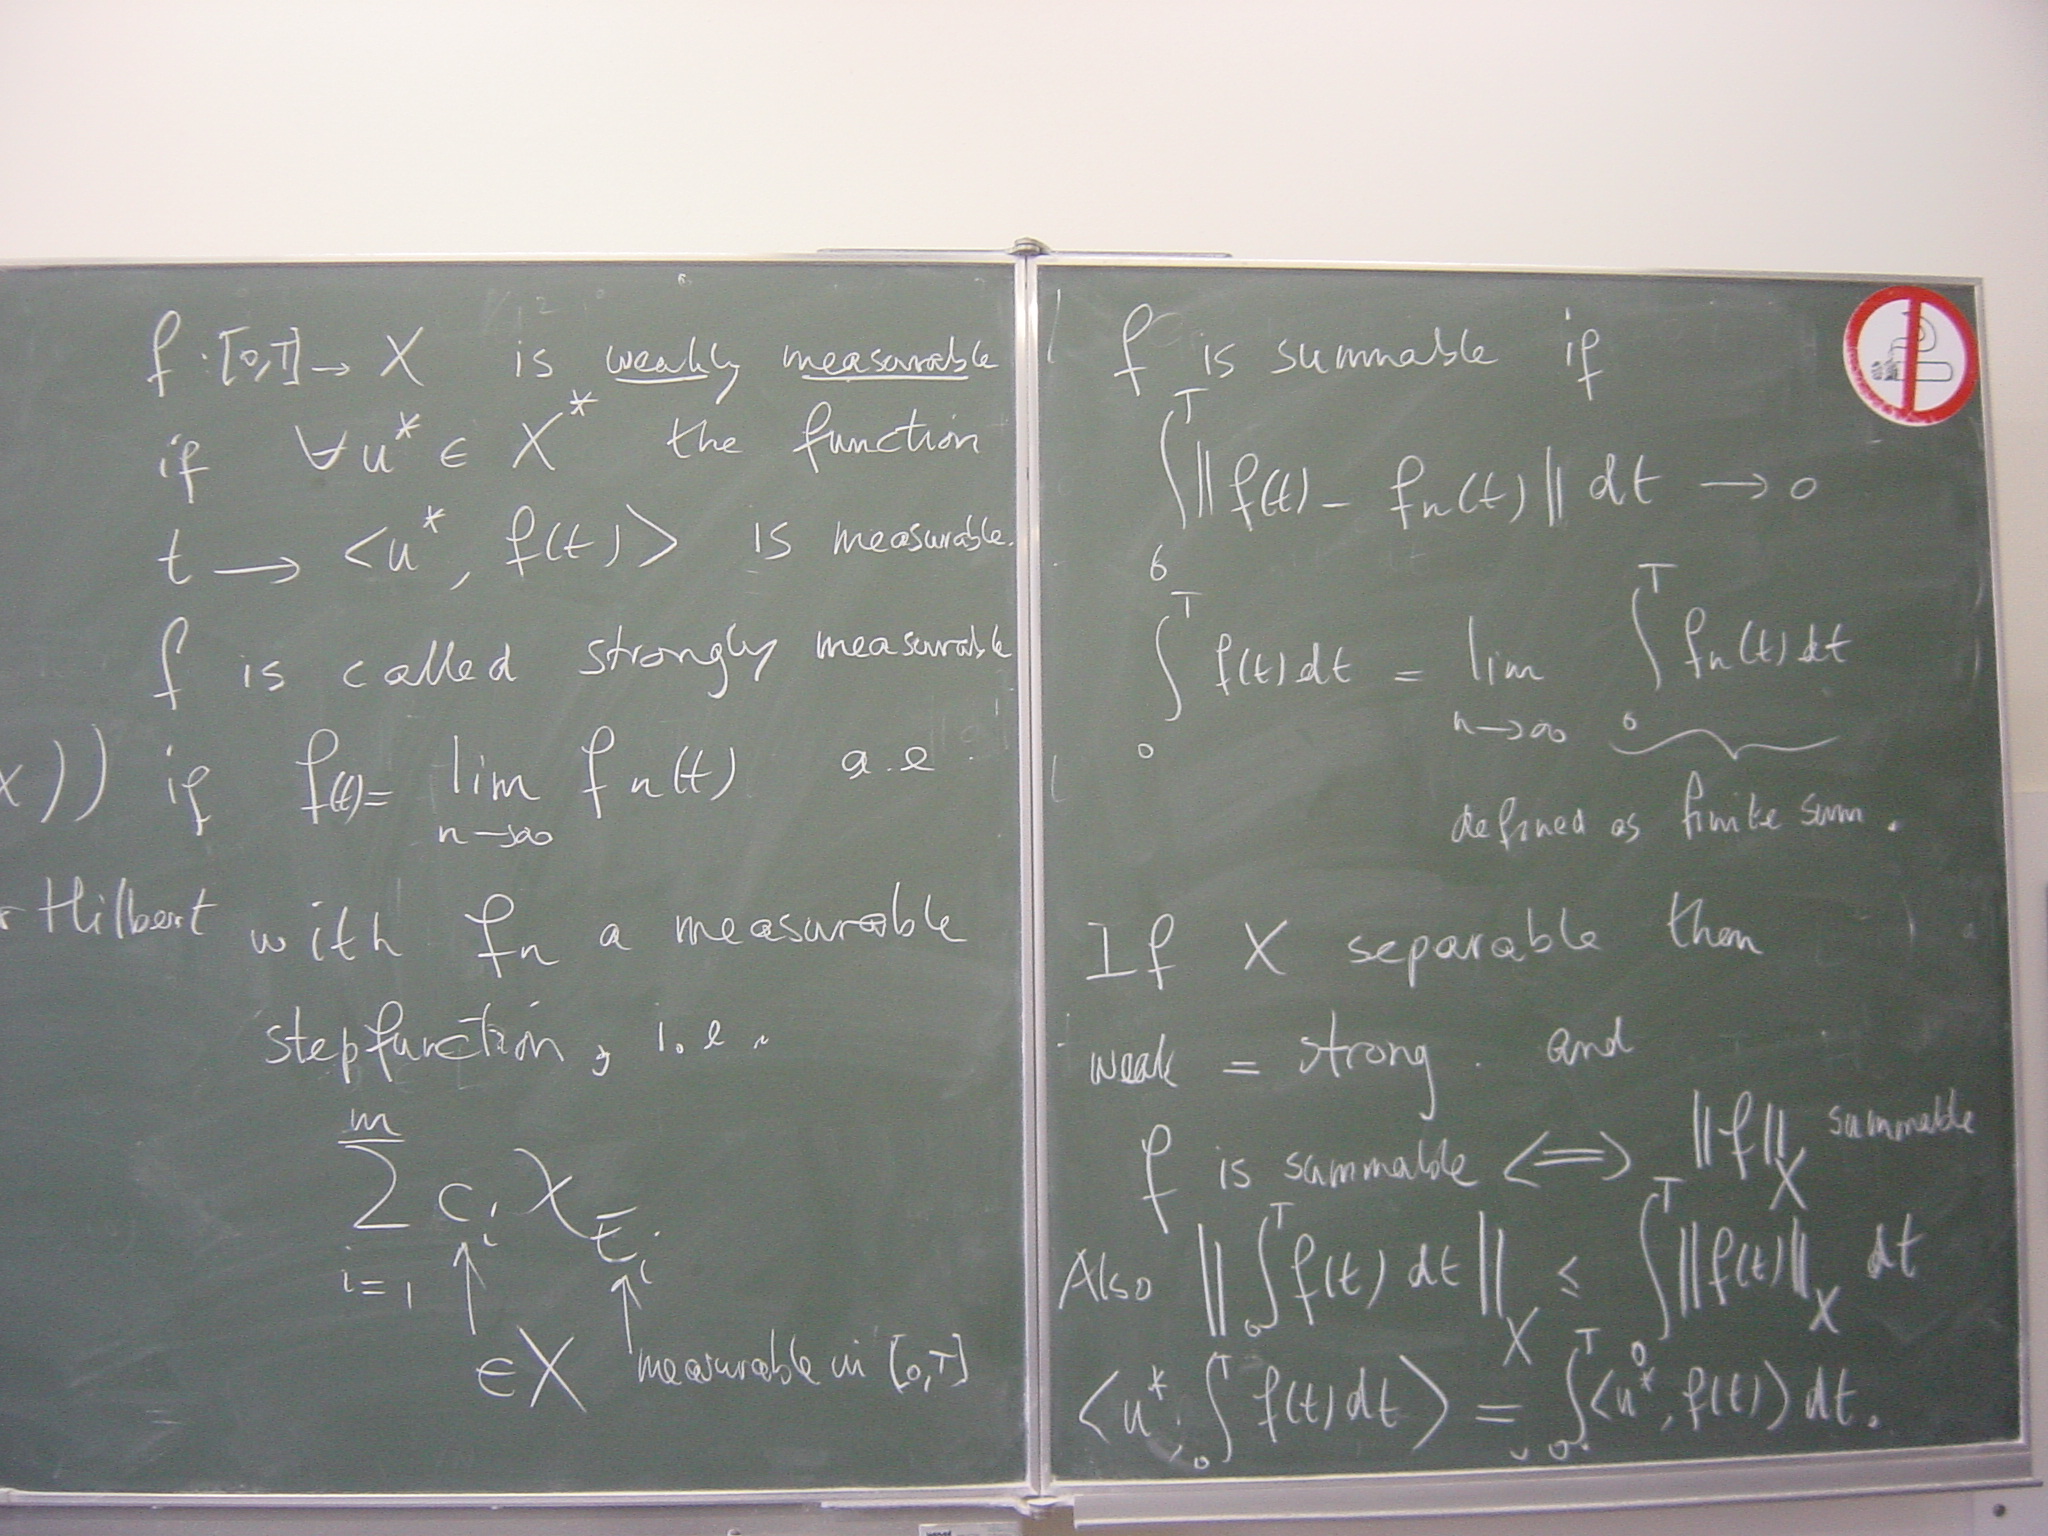 f : [0,T] → X is weakly measurable
if ∀ u* ∈ X* the function
t → <u*, f(t)> is measurable.
f is called strongly measurable
X)) if f(t) = lim f_n(t) a.e.
n→∞
Hilbert with f_n a measurable
stepfunction, i.e.
m
∑ c_i χ_{E_i}
i=1
∈X measurable in [0,T]
f is summable if
∫_0^T ||f(t) - f_n(t)|| dt → 0
∫_0^T f(t) dt = lim_{n→∞} ∫_0^T f_n(t) dt
defined as finite sum.
If X separable then
weak = strong. and
f is summable <=> ||f||_X summable
Also ||∫_0^T f(t) dt||_X ≤ ∫_0^T ||f(t)||_X dt
<u*, ∫_0^T f(t) dt> = ∫_0^T <u*, f(t)> dt.